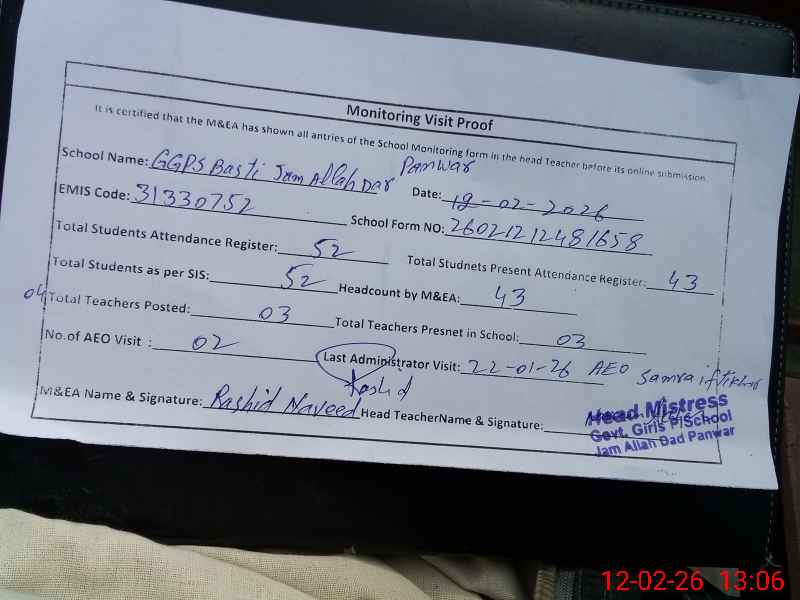 Monitoring Visit Proof
It is certified that the M&EA has shown all antries of the School Monitoring form in the head Teacher before its online submission
School Name: GGPS Basti Jam Allah Dar Panwar
EMIS Code: 31330752 Date: 12-02-2026
School Form NO: 26021212481658
Total Students Attendance Register: 52 Total Studnets Present Attendance Register: 43
Total Students as per SIS: 52 Headcount by M&EA: 43
04 Total Teachers Posted: 03 Total Teachers Presnet in School: 03
No.of AEO Visit : 02 Last Administrator Visit: 22-01-26 AEO Samra iftikhar
Rashid
M&EA Name & Signature: Rashid Naveed Head TeacherName & Signature:
Head Mistress
Govt. Girls P/School
Jam Allah Dad Panwar
12-02-26 13:06